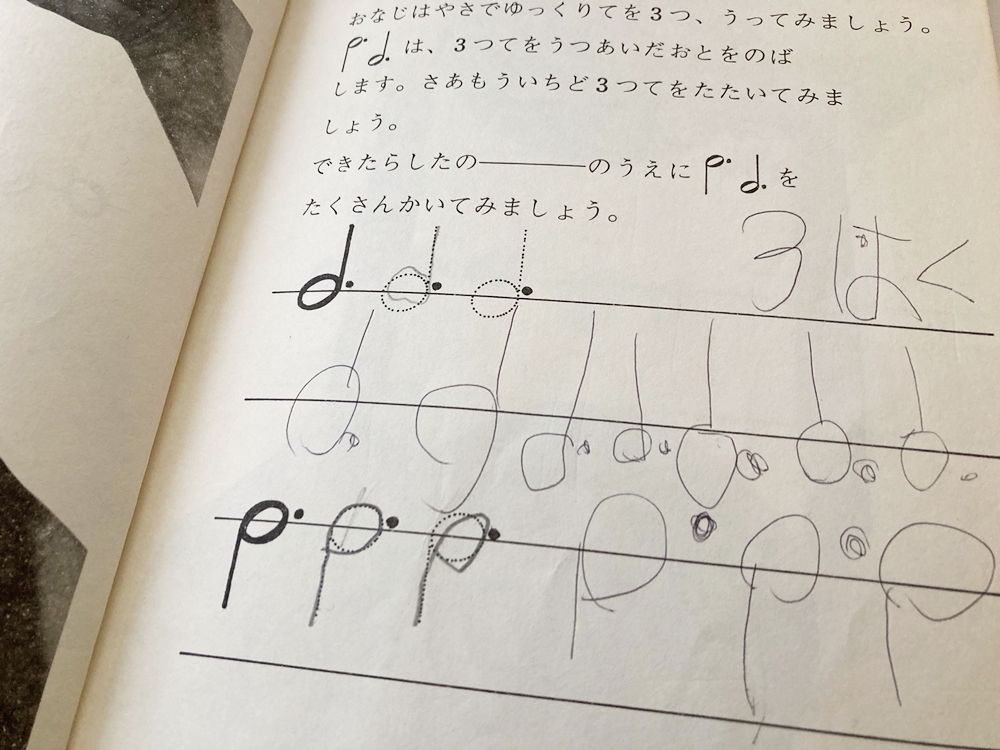 おなじはやさでゆっくりてを3つ、うってみましょう。
は、3つてをうつあいだおとをのば
します。さあもういちど3つてをたたいてみま
しょう。
できたらしたの————のうえに を
たくさんかいてみましょう。
3はく